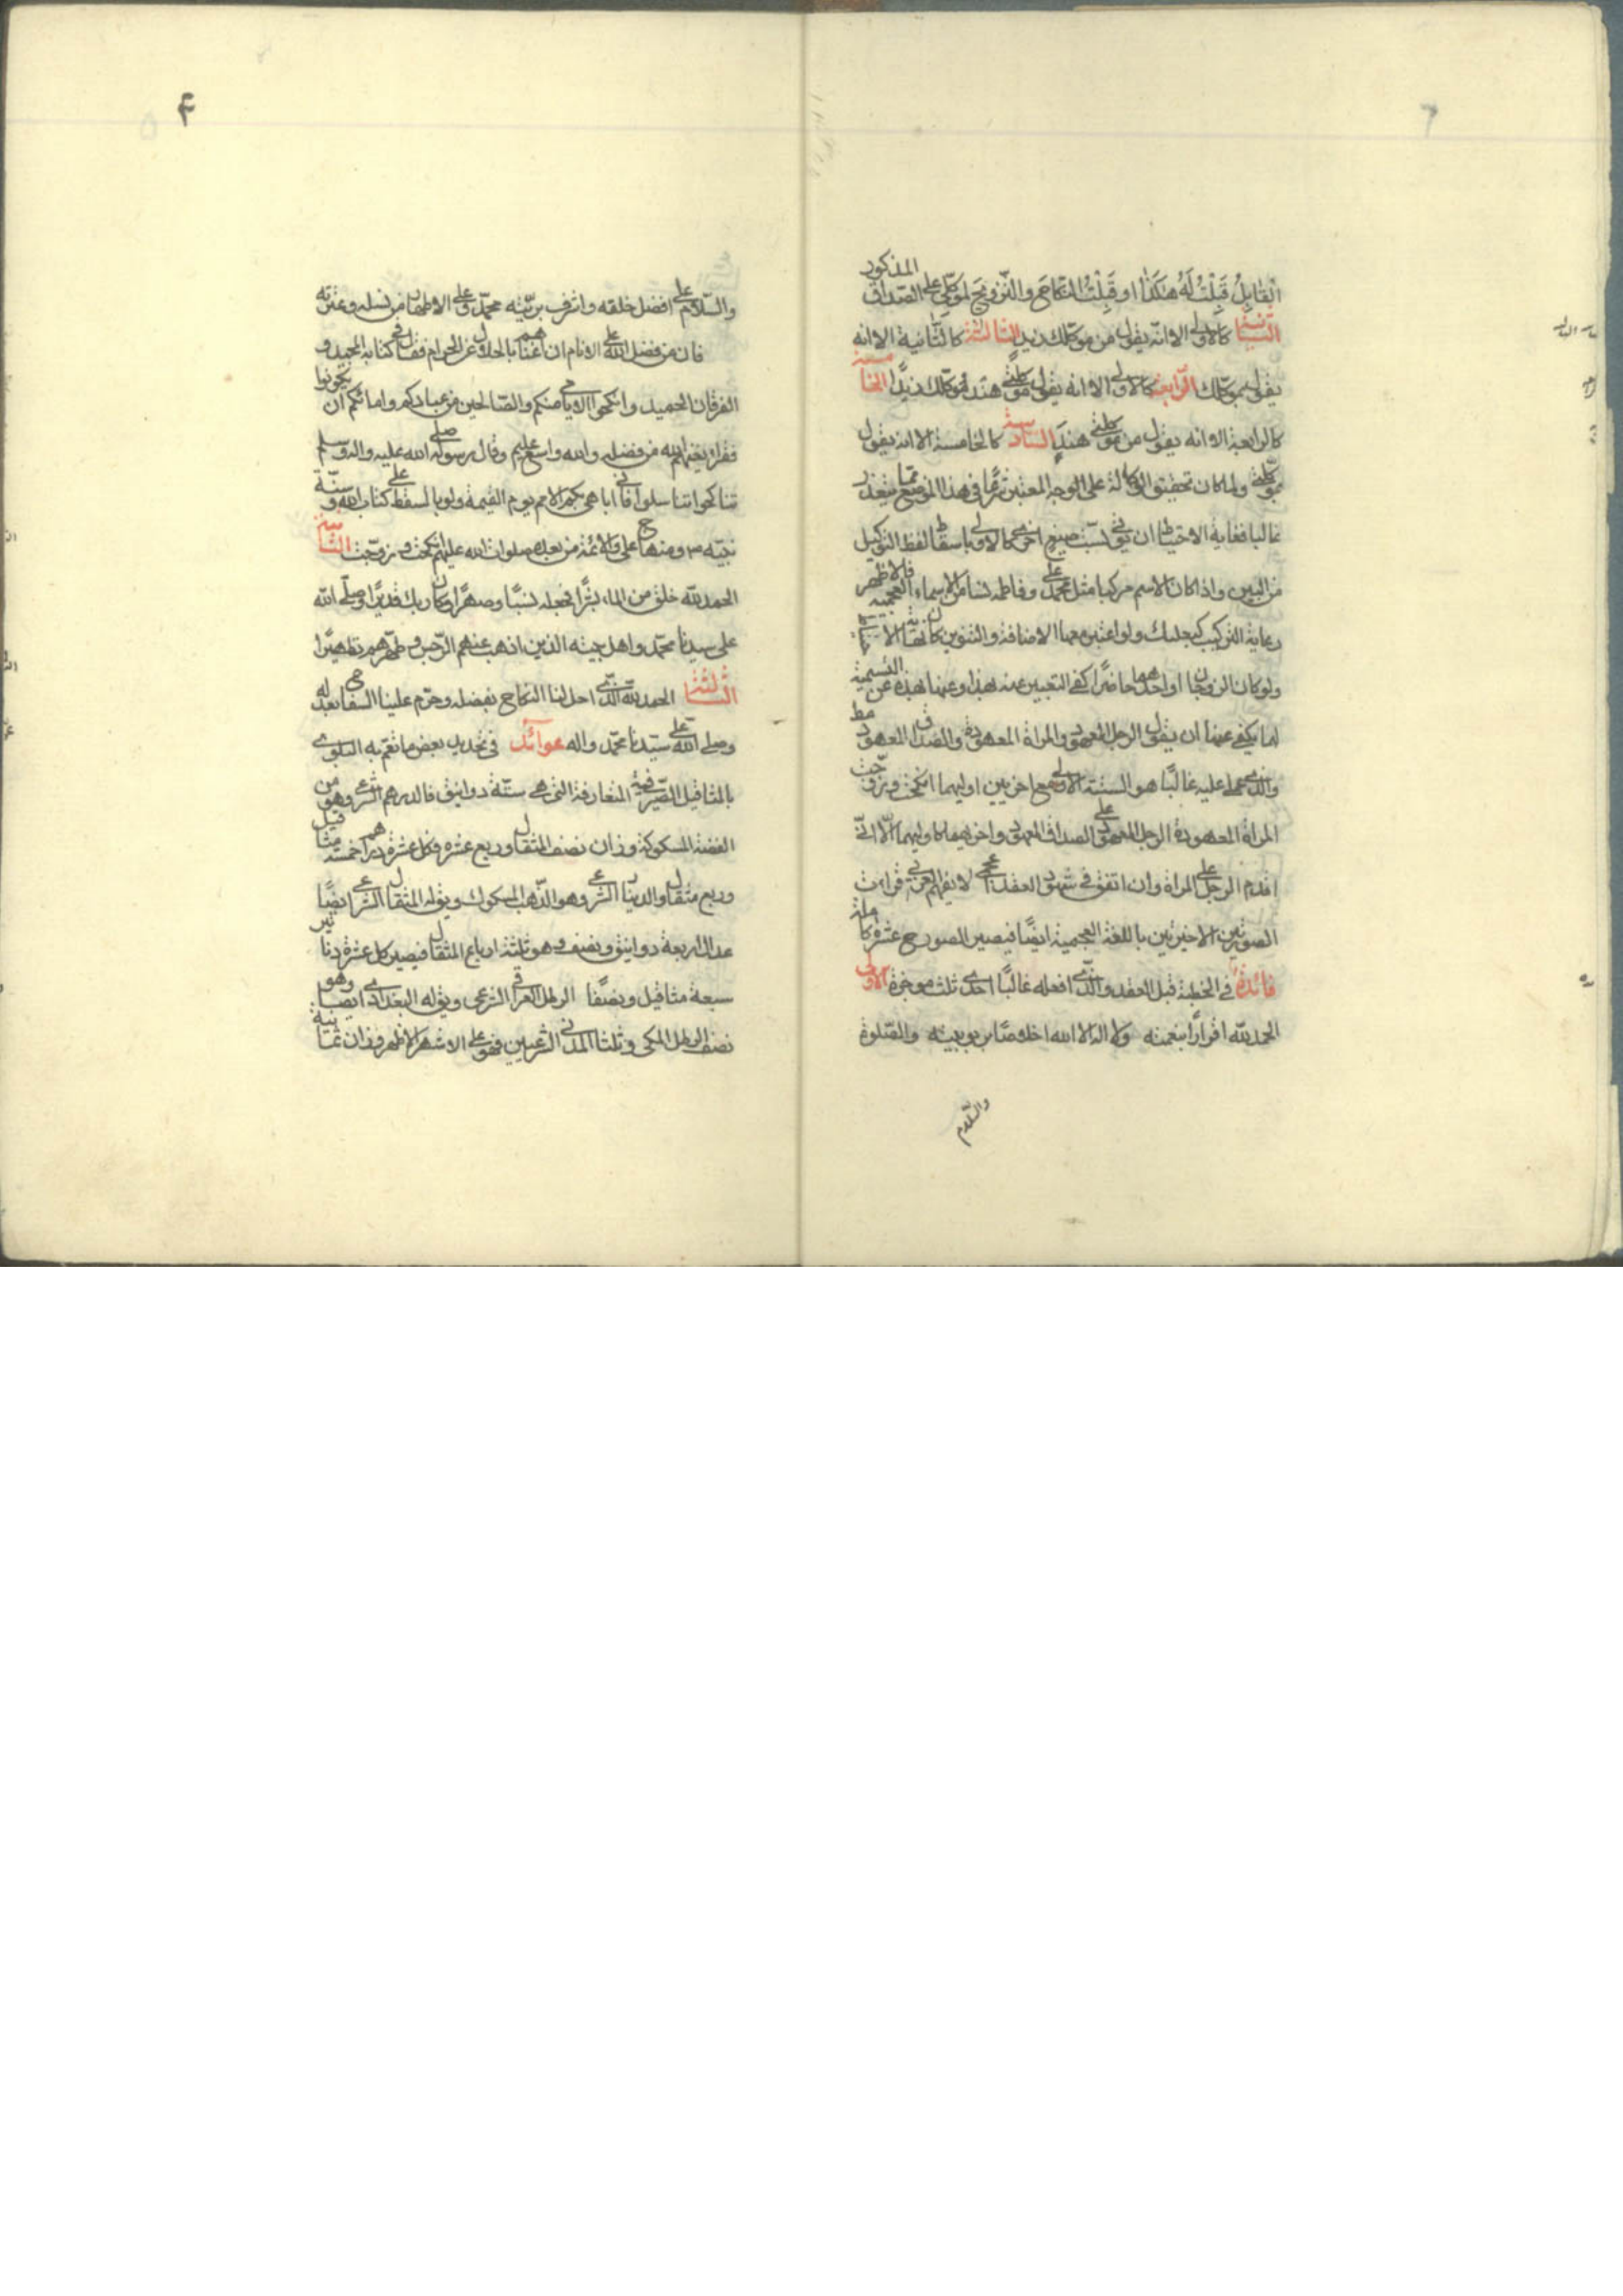 القابل قَبِلْتُ لَهُ هكَذا او قَبِلْتُ النكاحَ والتزويجَ لموَكلي على الصداق المذكور
الثانية كالاولى الا انه يقول من موكلك زيد الثالثة كالثانية الا انه
يقول بموكلك الرابعة كالاولى الا انه يقول موكلتي هند لموكلك زيدا الخامسة
كالرابعة الا انه يقول من موكلتي هند السادسة كالخامسة الا انه يقول
بموكلتي ولما كان تحقيق الوكالة على الوجه المعتبر شرعا في هذا الموضع مما يتعذر
غالبا فغاية الاحتياط ان يؤتى بست صيغ اخرى كالاولى باسقاط لفظ التوكيل
من البين واذا كان الاسم مركبا مثل محمد على وفاطمه نسا من الاسماء العجمية فالاظهر
رعاية التركيب كبعلبك ولو اعتبر معها الاضافة والتنوين كان
ولو كان الزوجان او احدهما حاضرا كفى التعبير عنه بهذا وعنها بهذه عن التسمية
كما يكفى عنها ان يقول الرجل المعهود والمراة المعهودة والصداق المعهود
والذى عملى عليه غالبًا هو الستة الاولى مع اخريين اوليهما انكحت وزوجت
المراة المعهودة الرجل المعهود على الصداق المعهود واخريهما كاوليهما الا انى
اقدم الرجل على المراة وان اتفق في شهود العقد عجمى لا يفهم العربى قراءت
الصورتين الاخيرتين باللغة العجمية ايضًا فيصير الصور ح عشرة كاملة
فائدة في الخطبة قبل العقد والذى افعله غالبًا احدى ثلث موجزة الاولى
الحمد لله اقرارًا بنعمته ولا اله الا الله اخلاصًا بربوبيته والصلوة
والسلام
والسلام على افضل خلقه واشرف بريته محمد وعلى الاطهار من نسله وعترته
فان من فضل الله على الانام ان اغناهم بالحلال عن الحرام فقال في كتابه المجيد و
الفرقان الحميد وانكحوا الايامى منكم والصالحين من عبادكم وامائكم ان يكونوا
فقراء يغنهم الله من فضله والله واسع عليم وقال رسوله صلى الله عليه واله وسلم
تناكحوا تناسلوا فانى اباهى بكم الامم يوم القيمة ولو بالسقط على كتاب الله و سنة
نبيه ومنهاج على والائمة من بعده صلوات الله عليهم انكحت وزوجت الثانية
الحمد لله خلق من الماء بشرًا فجعله نسبًا وصهرًا وكان ربك قديرًا وصلى الله
على سيدنا محمد واهل بيته الذين اذهب عنهم الرجس وطهرهم تطهيرًا
الثالثة الحمد لله الذى احل لنا النكاح بفضله وحرم علينا السفاح بعدله
وصلى الله على سيدنا محمد واله عوائد في تحديد بعض ما تعم به البلوى
بالمثاقيل الصيرفية المتعارفة التى هى ستة دوانيق فالدرهم الشرعى وهو من
الفضة المسكوكة وزان نصف المثقال وربع عشره فكل عشرة دراهم خمسة مثاقيل
وربع مثقال والدينار الشرعى وهو الذهب المسكوك ويق له المثقال الشرعى ايضًا
عدل اربعة دوانيق ونصف وهو ثلثة ارباع المثقال فيصير كل عشرة دنانير
سبعة مثاقيل ونصفًا الرطل العراقى الشرعى ويق له البغدادى ايضا وهو
نصف الرطل المكى وثلثا المدنى الشرعيين فهو على الاشهر الاظهر وزان ثمانية